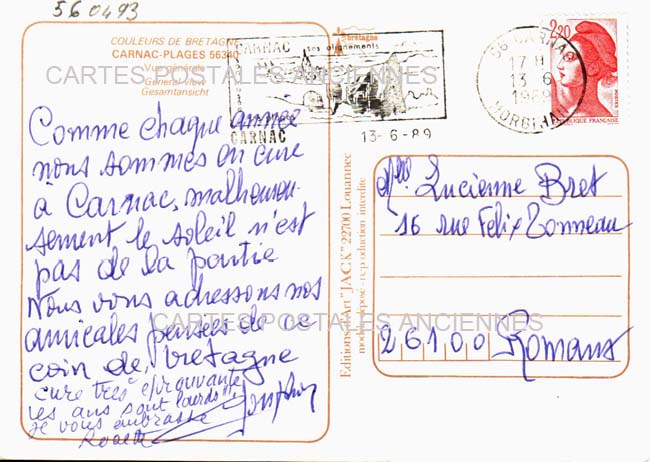 560493
COULEURS DE BRETAGNE
CARNAC-PLAGES 56340
Vue générale
General view
Gesamtansicht
CARTES POSTALES ANCIENNES
Comme chaque année
nous sommes en cure
à Carnac, malheureu-
sement le soleil n'est
pas de la partie
Nous vous adressons nos
amicales pensées de ce
coin de bretagne
cure très éprouvante
les ans sont lourds!!!
je vous embrasse
bretagne
CARNAC
ses alignements
CARNAC
13-6-89
56 CARNAC
17 H
13-6
1989
MORBIHAN
2,20
POSTES
REPUBLIQUE FRANÇAISE
Editions d'Art "JACK" 22700 Louannec
modèle déposé - reproduction interdite
Mlle Lucienne Bret
16 rue Felix Tonneau
CARTES POSTALES ANCIENNES
26100 Romans